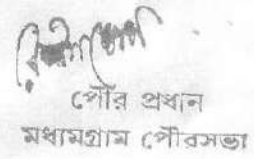 পৌর প্রধান
মধ্যমগ্রাম পৌরসভা